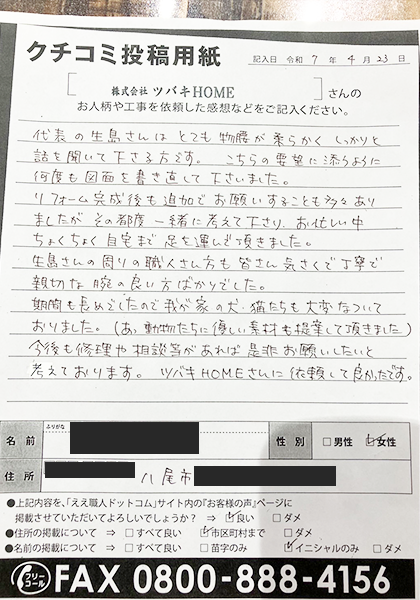 クチコミ投稿用紙
記入日 令和 7 年 4 月 23 日
株式会社 ツバキHOME さんの
お人柄や工事を依頼した感想などをご記入ください。
代表の生島さんは とても 物腰が 柔らかく しっかりと
話を聞いて下さる方です。 こちらの要望に添うように
何度も図面を書き直して下さいました。
リフォーム完成後も追加でお願いすることも多々あり
ましたが その都度 一緒に考えて下さり、お忙しい中
ちょくちょく 自宅まで 足を運んで頂きました。
生島さんの周りの職人さん方も皆さん 気さくで丁寧で
親切な 腕の良い方ばかりでした。
期間も長めでしたので我が家の犬・猫たちも大変なついて
おりました。(あ、動物たちに優しい素材も提案して頂きました)
今後も修理や相談等があれば是非お願いしたいと
考えております。 ツバキHOMEさんに依頼して良かったです。
ふりがな
名前
性別 □男性 ☑女性
住所 八尾市
●上記内容を、「ええ職人ドットコム」サイト内の『お客様の声』ページに
掲載させていただいてよろしいでしょうか? ⇒ ☑良い □ダメ
●住所の掲載について ⇒ □すべて良い ☑市区町村まで □ダメ
●名前の掲載について ⇒ □すべて良い □苗字のみ ☑イニシャルのみ □ダメ
フリーコール FAX 0800-888-4156